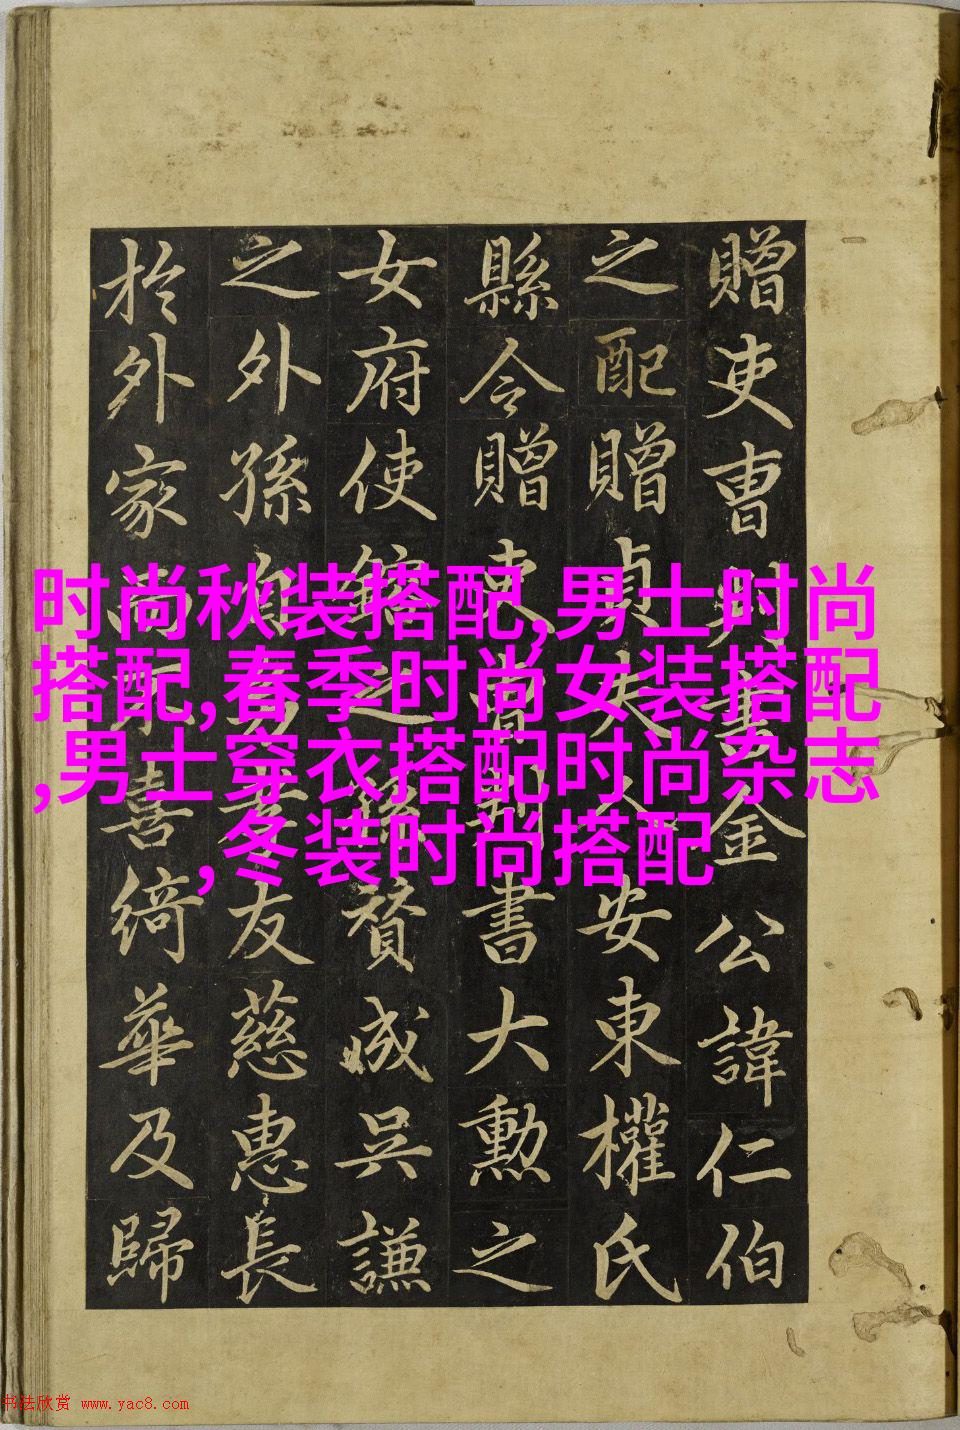 贈吏曺判書金公諱仁伯
之配贈貞夫人安東權氏
縣令贈吏曺判書大勳之
女府使之孫贊成吳謙
之外孫自孝友慈惠長
於外家不喜綺華及歸
时尚秋装搭配,男士时尚
搭配,春季时尚女装搭配
,男士穿衣搭配时尚杂志
,冬装时尚搭配
书法欣赏 www.yac8.com